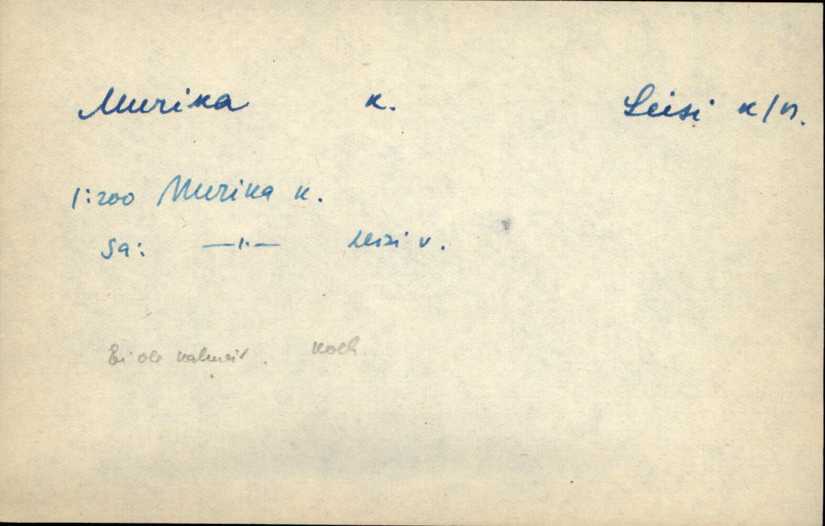 Murika k. Leisi k/n.
1:200 Murika k.
Sa: —ı.— Leisi v.
Ei ole kalmeid. koch